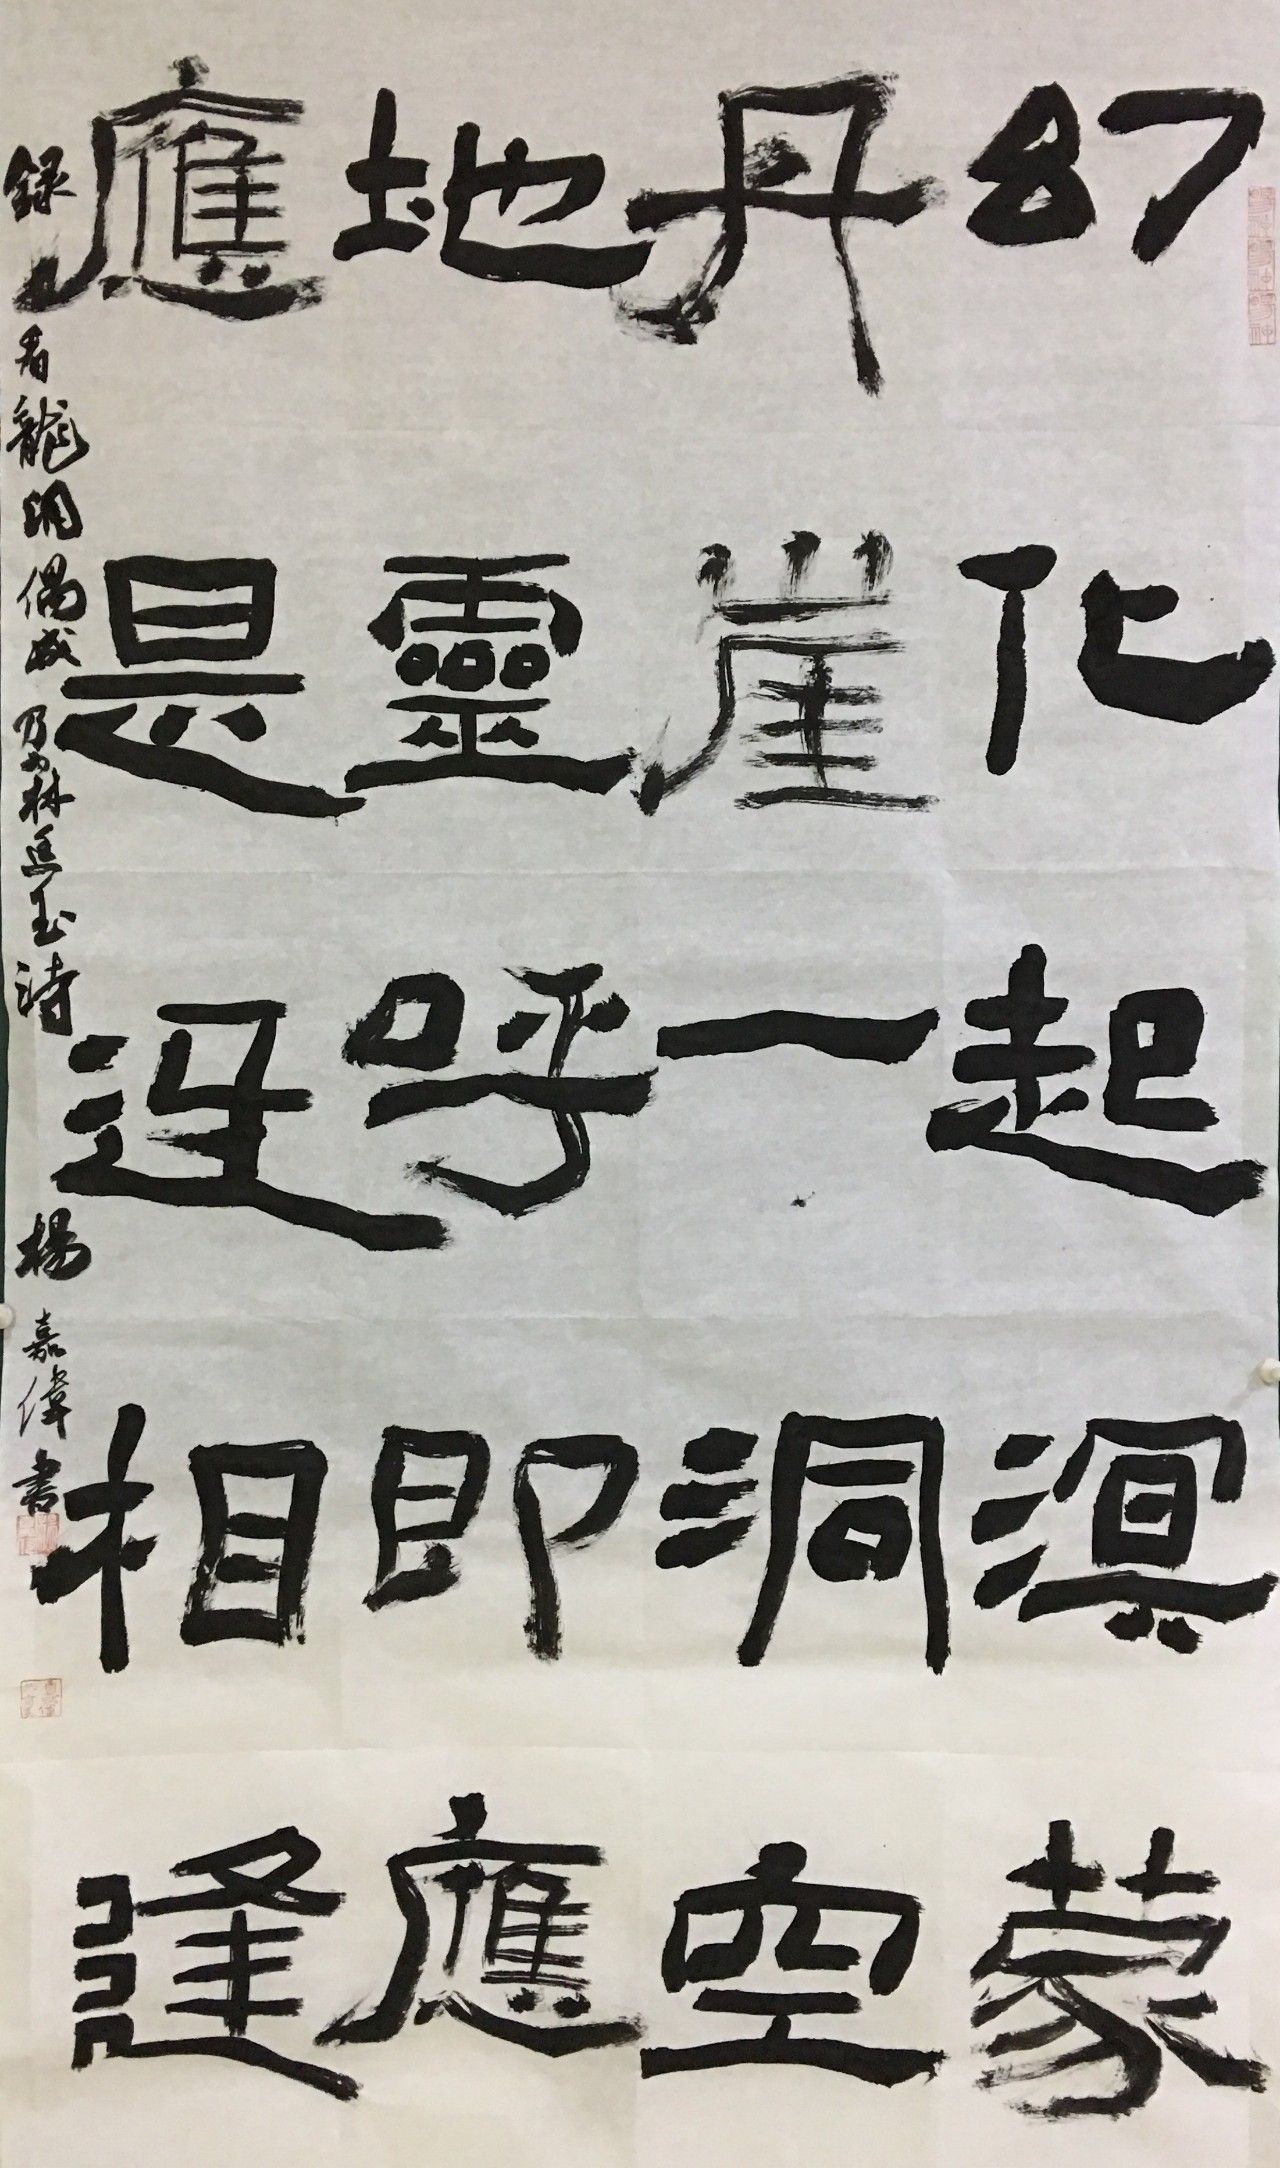 幻化起溟蒙
丹崖一洞空
地靈呼即應
應是迓相逢
録看龍洞偶成乃林廷玉詩楊嘉偉書